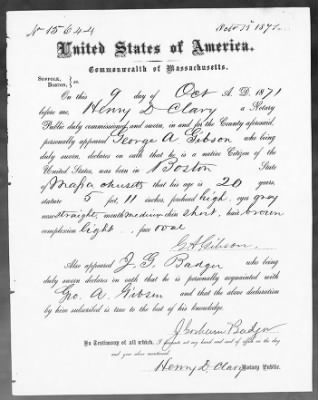 No 15644 Octo 13 1871
United States of America.
Commonwealth of Massachusetts.
Suffolk,
Boston, } ss.
On this 9 day of Oct A. D. 1871
before me, Henry D Clary a Notary
Public duly commissioned and sworn, in and for the County aforesaid,
personally appeared George A Gibson who being
duly sworn, declares on oath that he is a native Citizen of the
United States, was born in Boston State
of Massachusetts that his age is 20 years,
stature 5 feet, 11 inches, forehead high, eyes gray
nose straight, mouth medium chin short, hair brown
complexion light, face oval
G A Gibson
Also appeared J. G. Badger who being
duly sworn declares on oath that he is personally acquainted with
Geo. A. Gibson and that the above declaration
by him subscribed is true to the best of his knowledge.
J Gorham Badger
In Testimony of all which, I hereunto set my hand and seal of office on the day
and year above mentioned.
Henry D. Clary Notary Public.